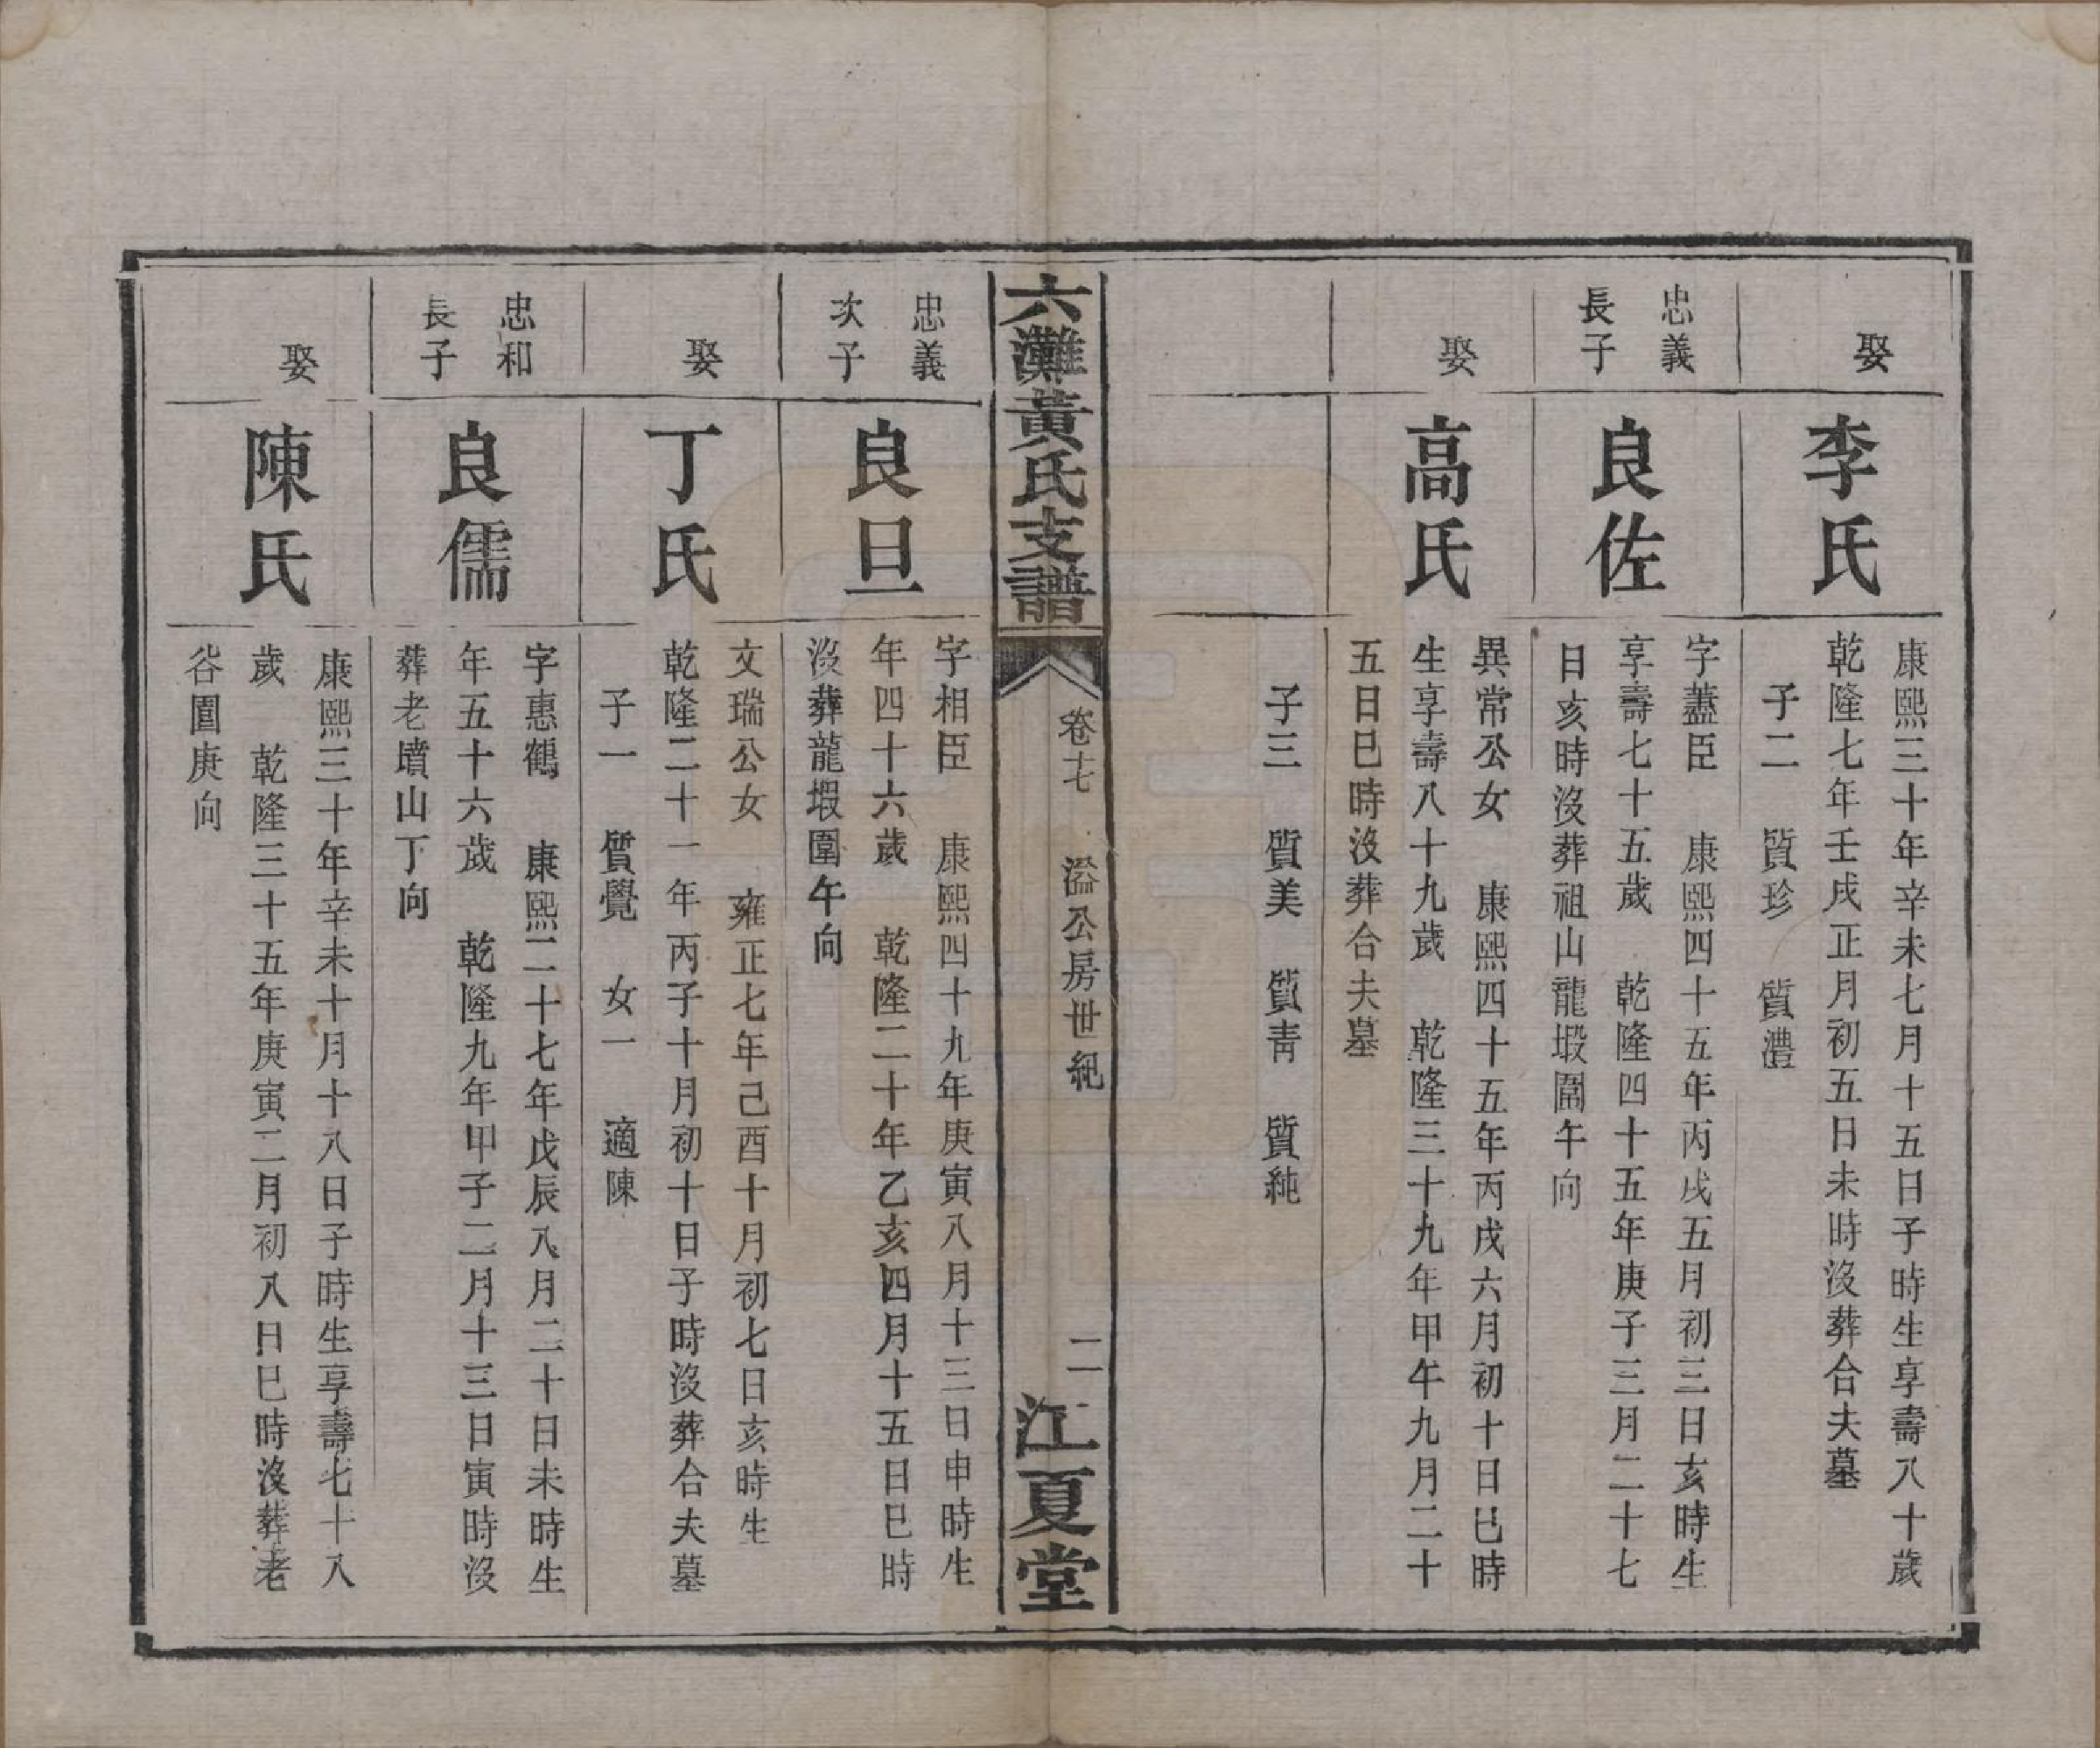 娶
李氏
康熙三十年辛未七月十五日子時生享壽八十歲
乾隆七年壬戌正月初五日未時沒葬合夫墓
子二　質珍　質澧
忠義
長子
良佐
字藎臣　康熙四十五年丙戌五月初三日亥時生
享壽七十五歲　乾隆四十五年庚子三月二十七
日亥時沒葬祖山龍塅圍午向
娶
高氏
異常公女　康熙四十五年丙戌六月初十日巳時
生享壽八十九歲　乾隆三十九年甲午九月二十
五日巳時沒葬合夫墓
子三　質美　質青　質純
六灘黃氏支譜
卷十七　溢公房世紀
二
江夏堂
忠義
次子
良旦
字相臣　康熙四十九年庚寅八月十三日申時生
年四十六歲　乾隆二十年乙亥四月十五日巳時
沒葬龍塅圍午向
娶
丁氏
文瑞公女　雍正七年己酉十月初七日亥時生
乾隆二十一年丙子十月初十日子時沒葬合夫墓
子一　質覺　女一　適陳
忠和
長子
良儒
字惠鶴　康熙二十七年戊辰八月二十日未時生
年五十六歲　乾隆九年甲子二月十三日寅時沒
葬老墳山丁向
娶
陳氏
康熙三十年辛未十月十八日子時生享壽七十八
歲　乾隆三十五年庚寅二月初八日巳時沒葬老
谷園庚向